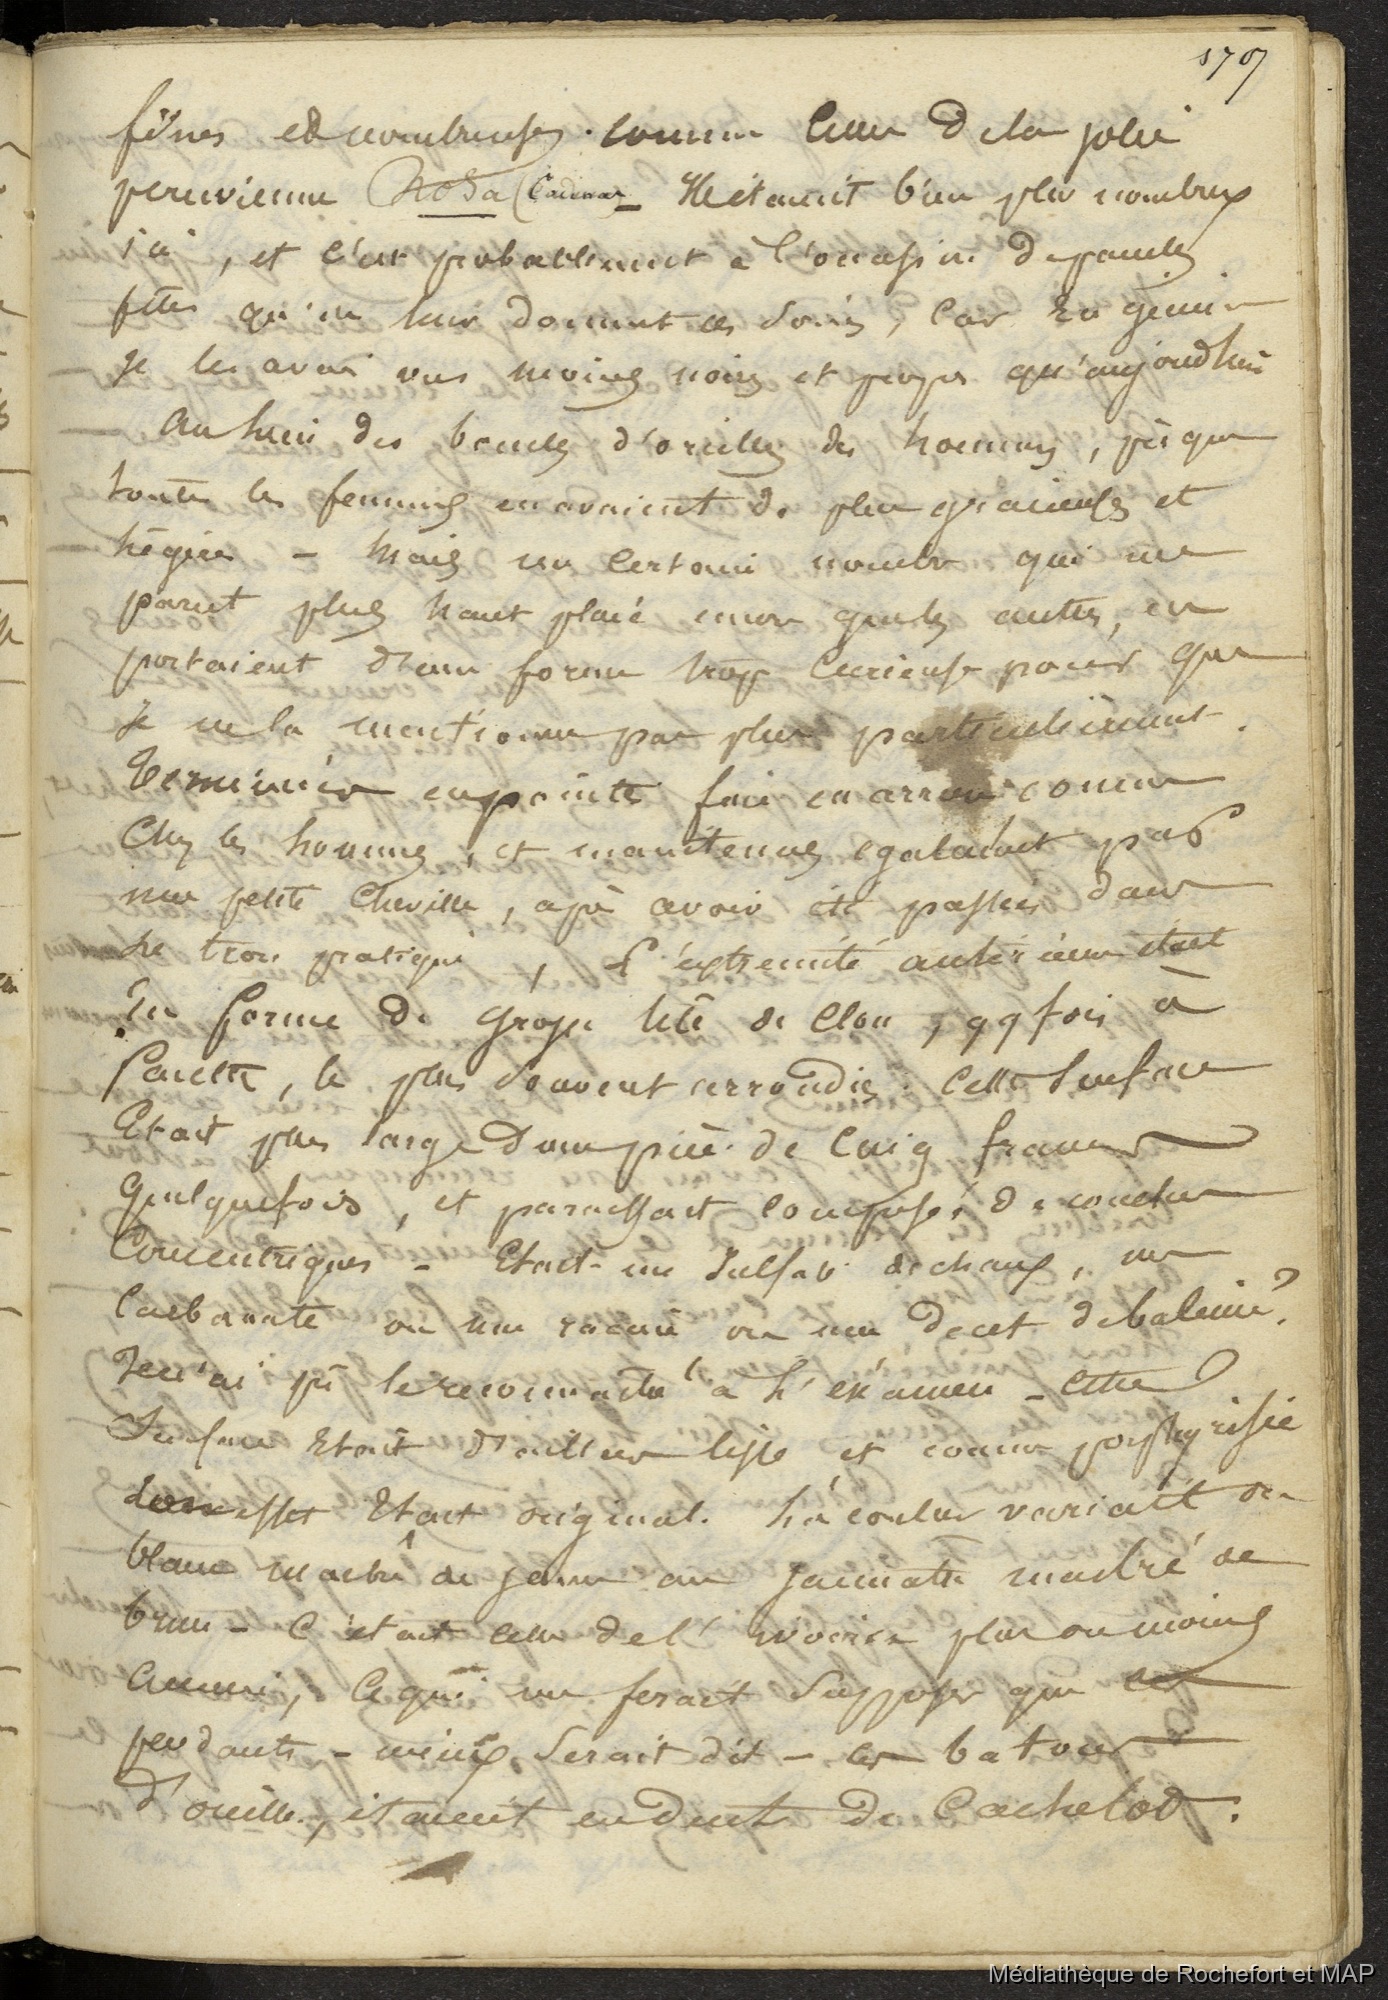 1707
fines et nombreuses comme celles de la jolie
peruvienne Rosa (Cadenas_ Ils étaient bien plus nombreux
ici, et c'est probablement à l'occasion de pareilles
fêtes qu'on leur donnent ces soins, car en général
je les avais vus moins noirs et propres qu'aujourd'hui
Au lieu des boucles d'oreilles des hommes, presque
toutes les femmes en avaient de plus gracieuses et
légères - Mais un certain nombre qui me
parut plus haut placé encore que les autres, en
portaient d'une forme trop curieuse pour que
je ne la mentionne pas plus particulièrement.
Terminées en pointe fine en arrière comme
chez les hommes, et maintenues également par
une petite cheville, après avoir été passées dans
le trou pratiqué, l'extrémité antérieure était
en forme de grosse tête de clou, qq fois à
facette, le plus souvent arrondie. Cette surface
Etait plus large d'une pièce de cinq francs
quelquefois, et paraissait composée de couches
Concentriques - Etait-ce un sulfate de chaux, un
carbonate ou une racine ou une dent de baleine?
Je n'ai pu le reconnaître à l'examen - cette
surface Etait d'ailleurs lisse et comme porphyrisée
effet Etait original. La couleur variait du
blanc marbré de jaune au jaunatre marbré de
brun - C'était celle de l'ivoire plus ou moins
ancien, ce qui me ferait supposer que ces
pendants - mieux serait dit - ces batons
d'oreille, étaient en dents de Cachelot.
Médiathèque de Rochefort et MAP